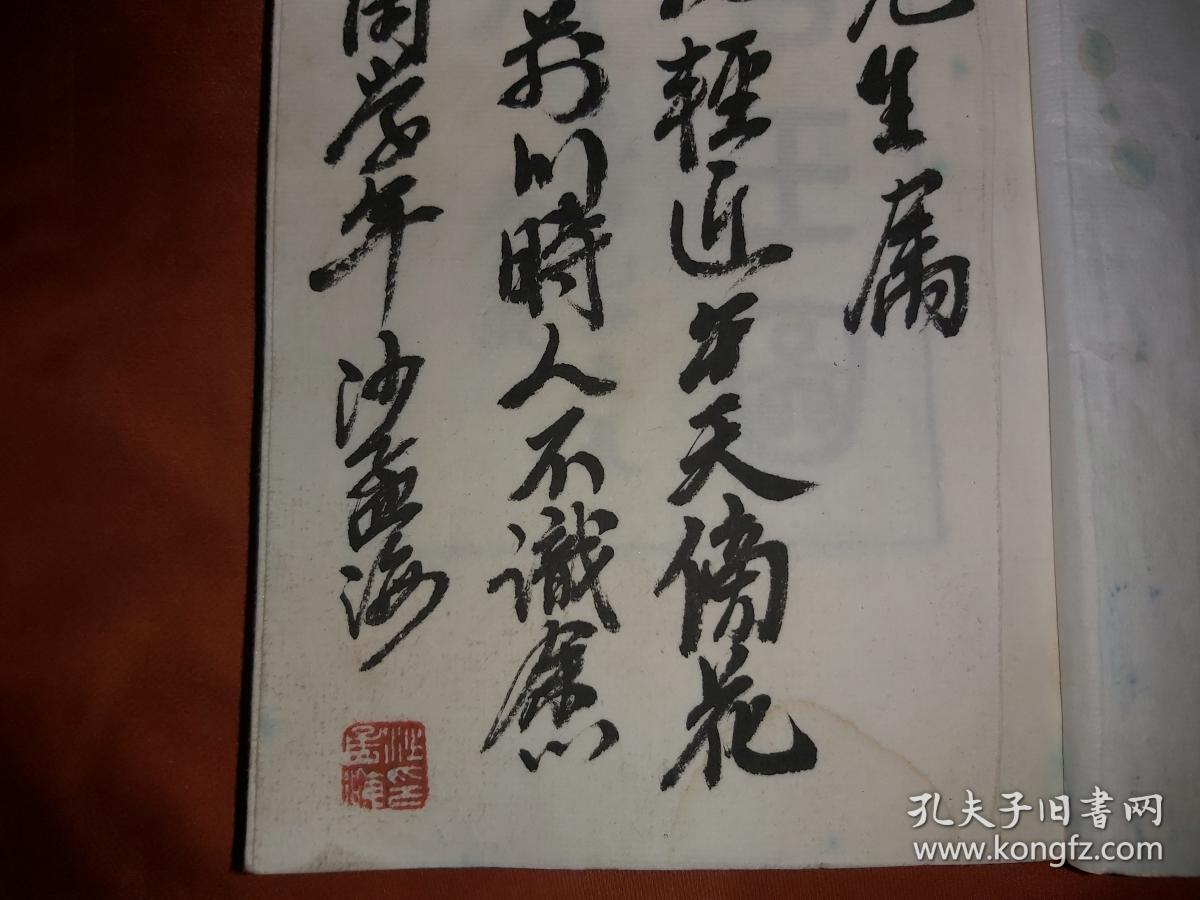 先生属
轻近午天傍花
前川時人不識余心
閒学年 沙孟海
沙孟海印
孔夫子旧书网
www.kongfz.com